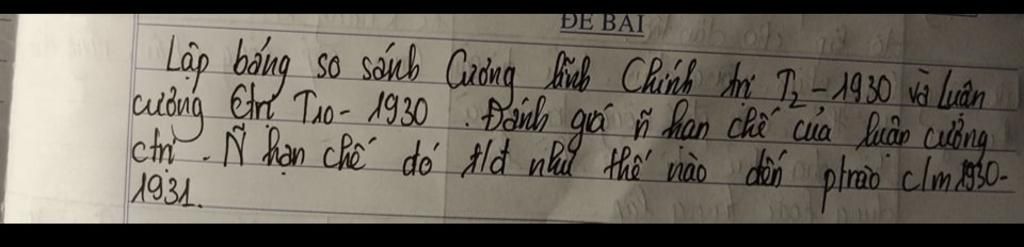 ĐỀ BÀI
Lập bảng so sánh Cương lĩnh Chính trị T2 - 1930 và luận
cương Ctrị T10 - 1930. Đánh giá ñ hạn chế của luận cương
ctrị. Ñ hạn chế đó t/đ như thế nào đến ptrào c/m 1930-
1931.